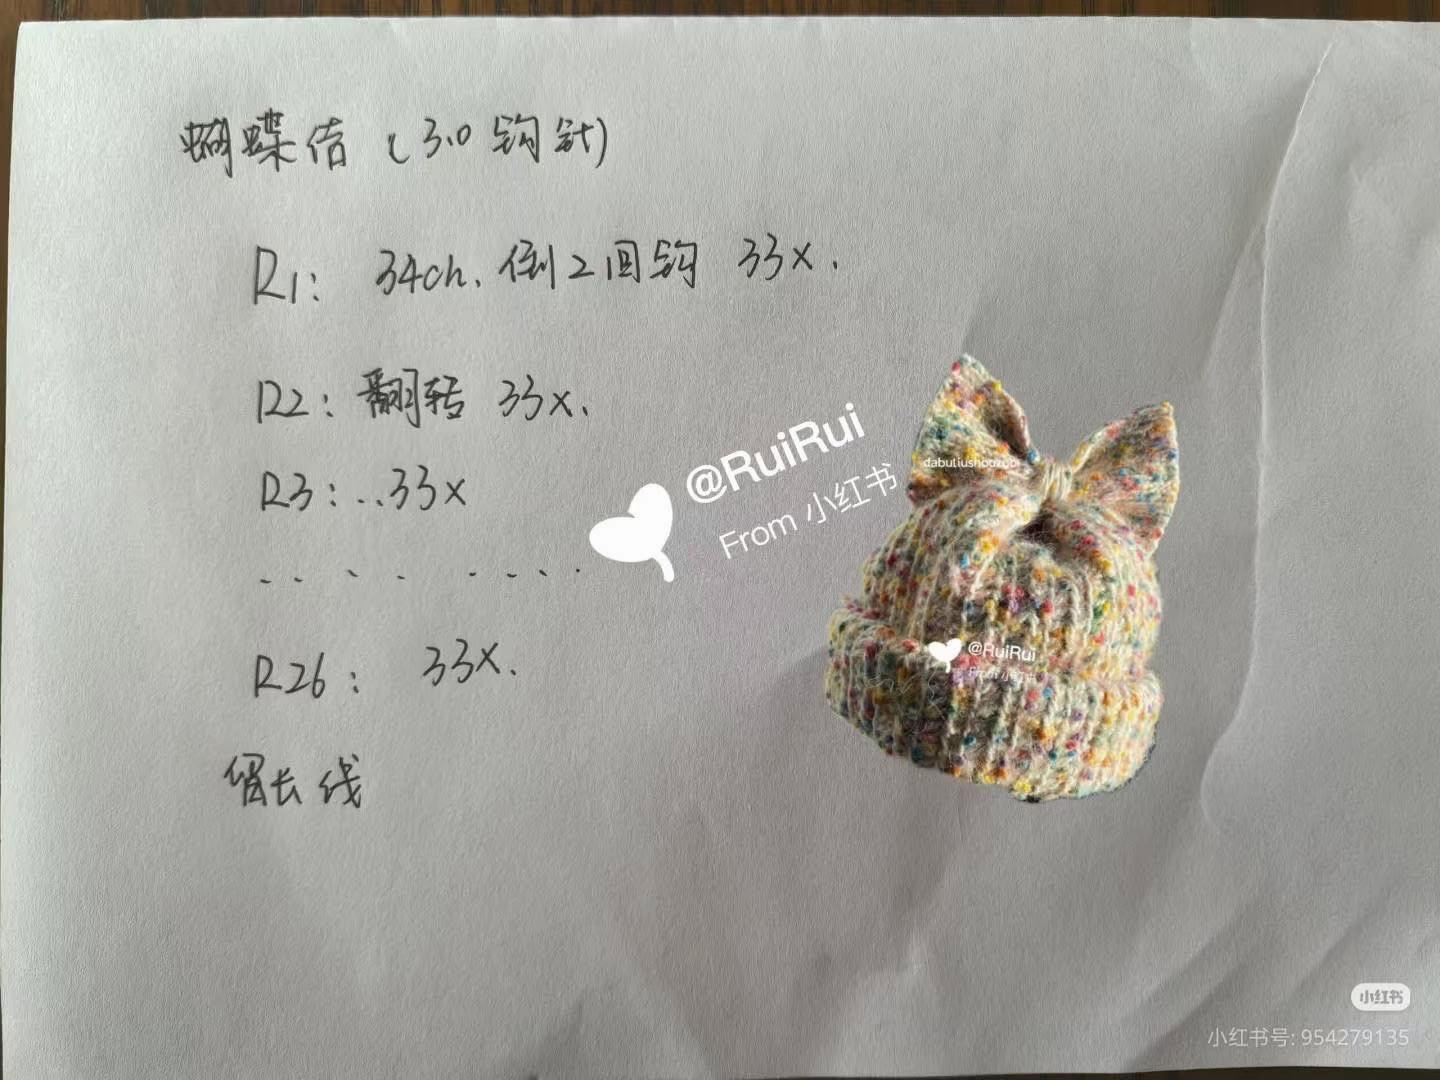 蝴蝶结 (3.0 钩针)
R1: 34ch. 倒2回钩 33x.
R2: 翻转 33x.
R3: ..33x
.. .. ....
R26: 33x.
留长线
@RuiRui
From 小红书
dabuliushouzuo
@RuiRui
From 小红书
小红书
小红书号: 954279135